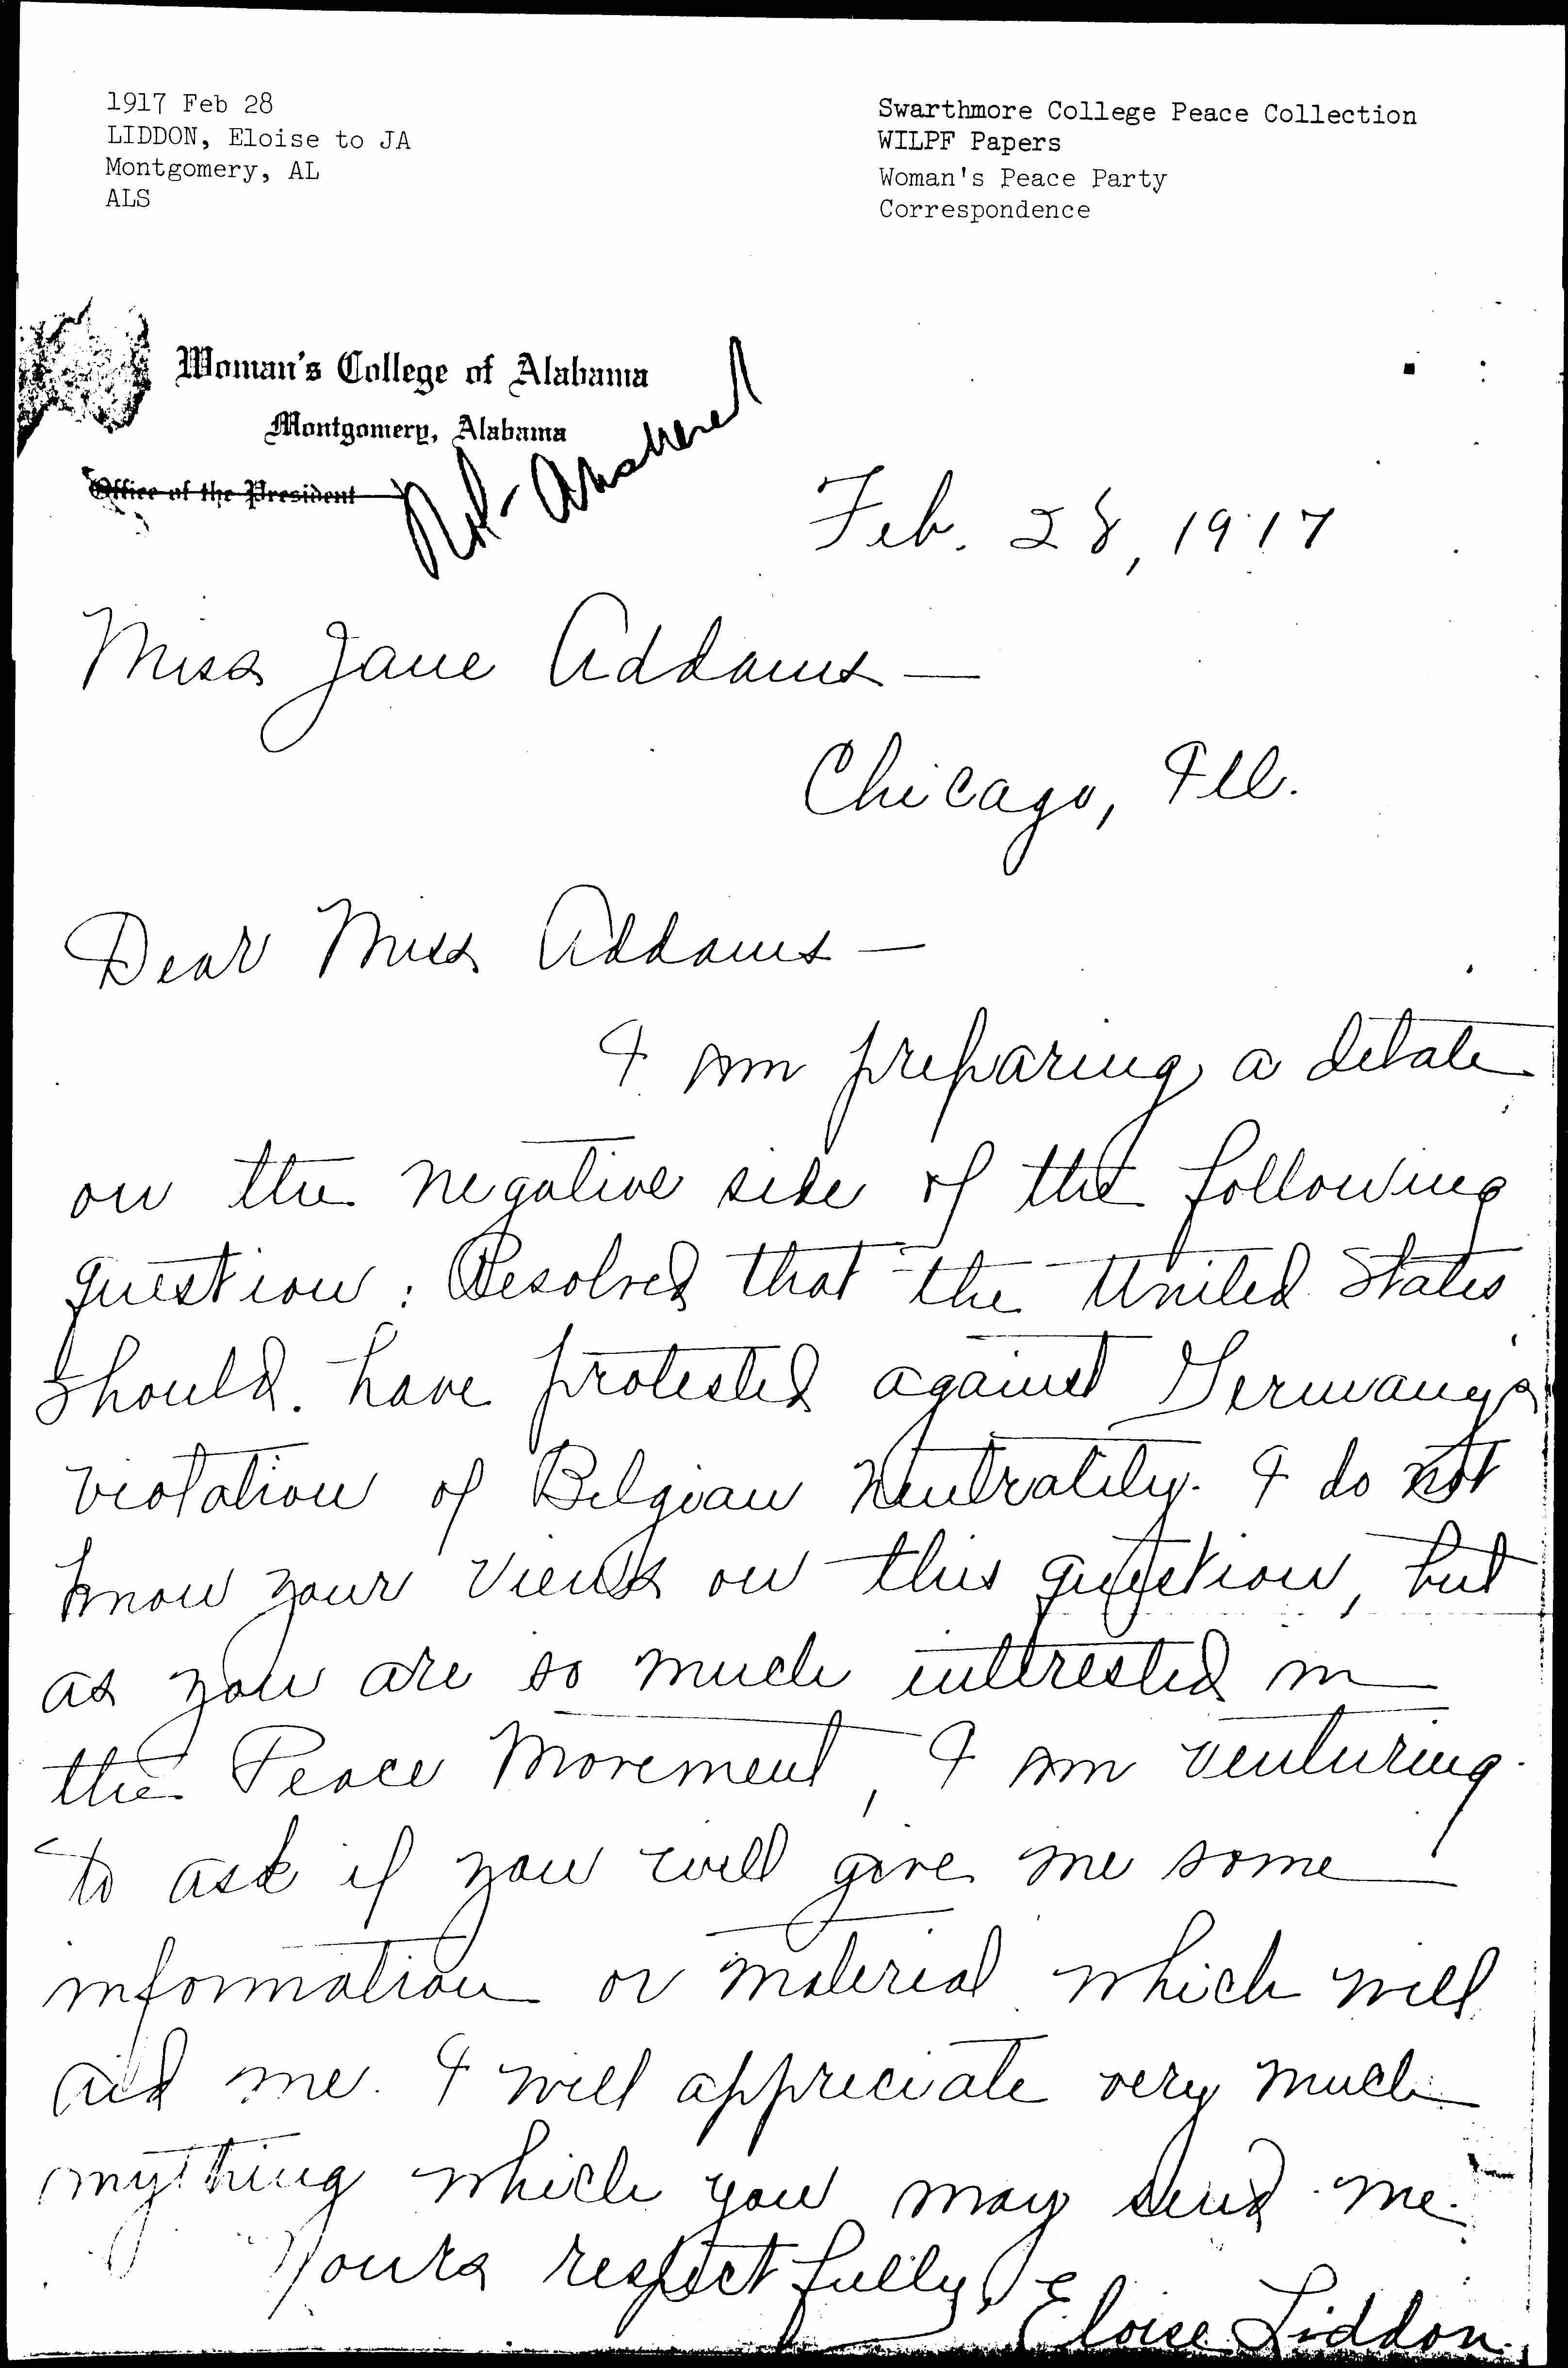 1917 Feb 28
LIDDON, Eloise to JA
Montgomery, AL
ALS
Swarthmore College Peace Collection
WILPF Papers
Woman's Peace Party
Correspondence
Woman's College of Alabama
Montgomery, Alabama
Office of the President
Not answered
Feb. 28, 1917
Miss Jane Addams —
Chicago, Ill.
Dear Miss Addams —
I am preparing a debate
on the negative side of the following
question: Resolved that the United States
should have protested against Germany's
violation of Belgian neutrality. I do not
know your views on this question, but
as you are so much interested in
the Peace Movement, I am venturing
to ask if you will give me some
information or material which will
aid me. I will appreciate very much
anything which you may send me.
Yours respectfully,
Eloise Liddon.